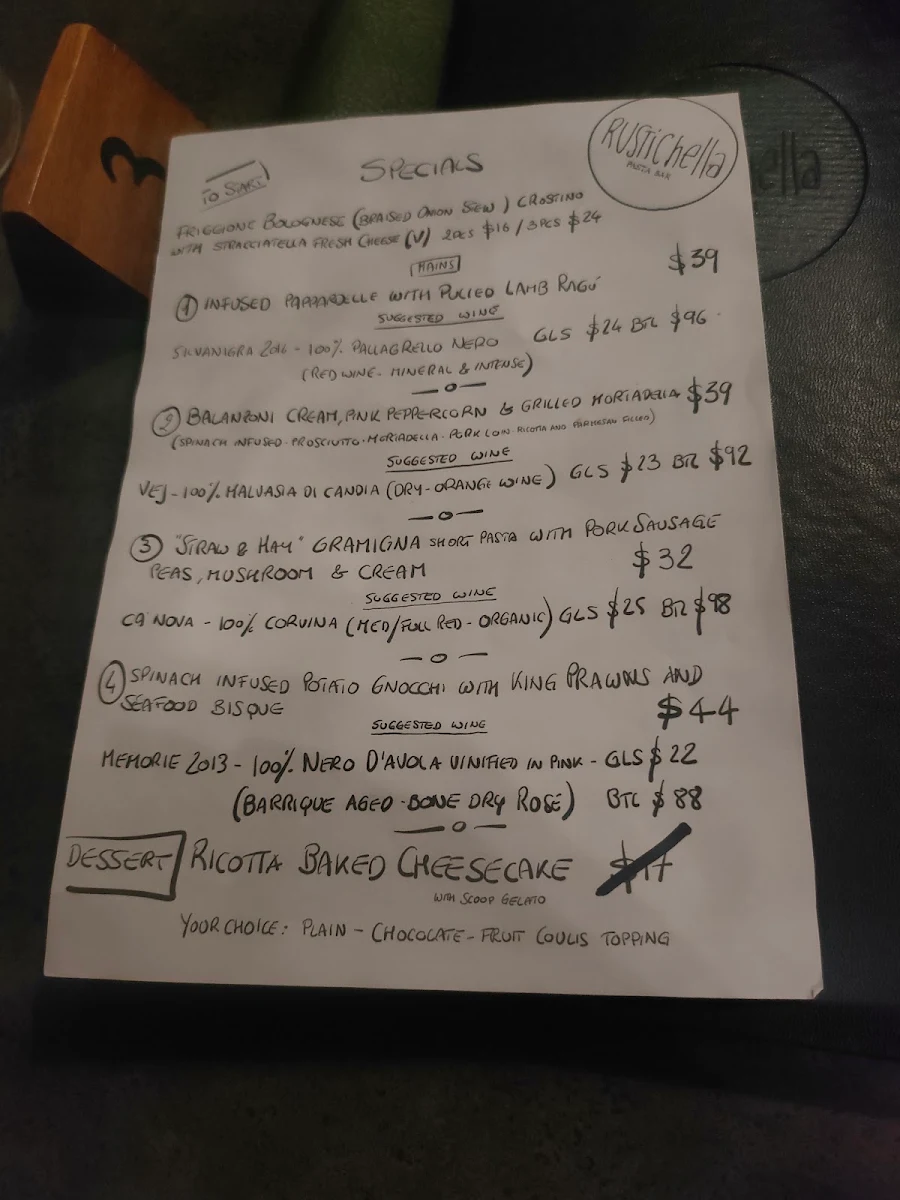 3
ella
TO START
SPECIALS
RUSTICHELLA
PASTA BAR
FRIGGIONE BOLOGNESE (BRAISED ONION STEW) CROSTINO
WITH STRACCIATELLA FRESH CHEESE (V) 2PCS $16 / 3PCS $24
MAINS
$39
1 INFUSED PAPPARDELLE WITH PULLED LAMB RAGÚ
SUGGESTED WINE
SILVANIGRA 2016 - 100% PALLAGRELLO NERO GLS $24 BTL $96
(RED WINE - MINERAL & INTENSE)
2 BALANZONI CREAM, PINK PEPPERCORN & GRILLED MORTADELLA $39
(SPINACH INFUSED - PROSCIUTTO - MORTADELLA - PORK LOIN - RICOTTA AND PARMESAN FILLED)
SUGGESTED WINE
VEJ - 100% MALVASIA DI CANDIA (DRY-ORANGE WINE) GLS $23 BTL $92
3 "STRAW & HAY" GRAMIGNA SHORT PASTA WITH PORK SAUSAGE
PEAS, MUSHROOM & CREAM $32
SUGGESTED WINE
CA' NOVA - 100% CORVINA (MED/FULL RED - ORGANIC) GLS $25 BTL $98
4 SPINACH INFUSED POTATO GNOCCHI WITH KING PRAWNS AND
SEAFOOD BISQUE $44
SUGGESTED WINE
MEMORIE 2013 - 100% NERO D'AVOLA VINIFIED IN PINK - GLS $22
(BARRIQUE AGED - BONE DRY ROSÉ) BTL $88
DESSERT RICOTTA BAKED CHEESECAKE $17
WITH SCOOP GELATO
YOUR CHOICE: PLAIN - CHOCOLATE - FRUIT COULIS TOPPING